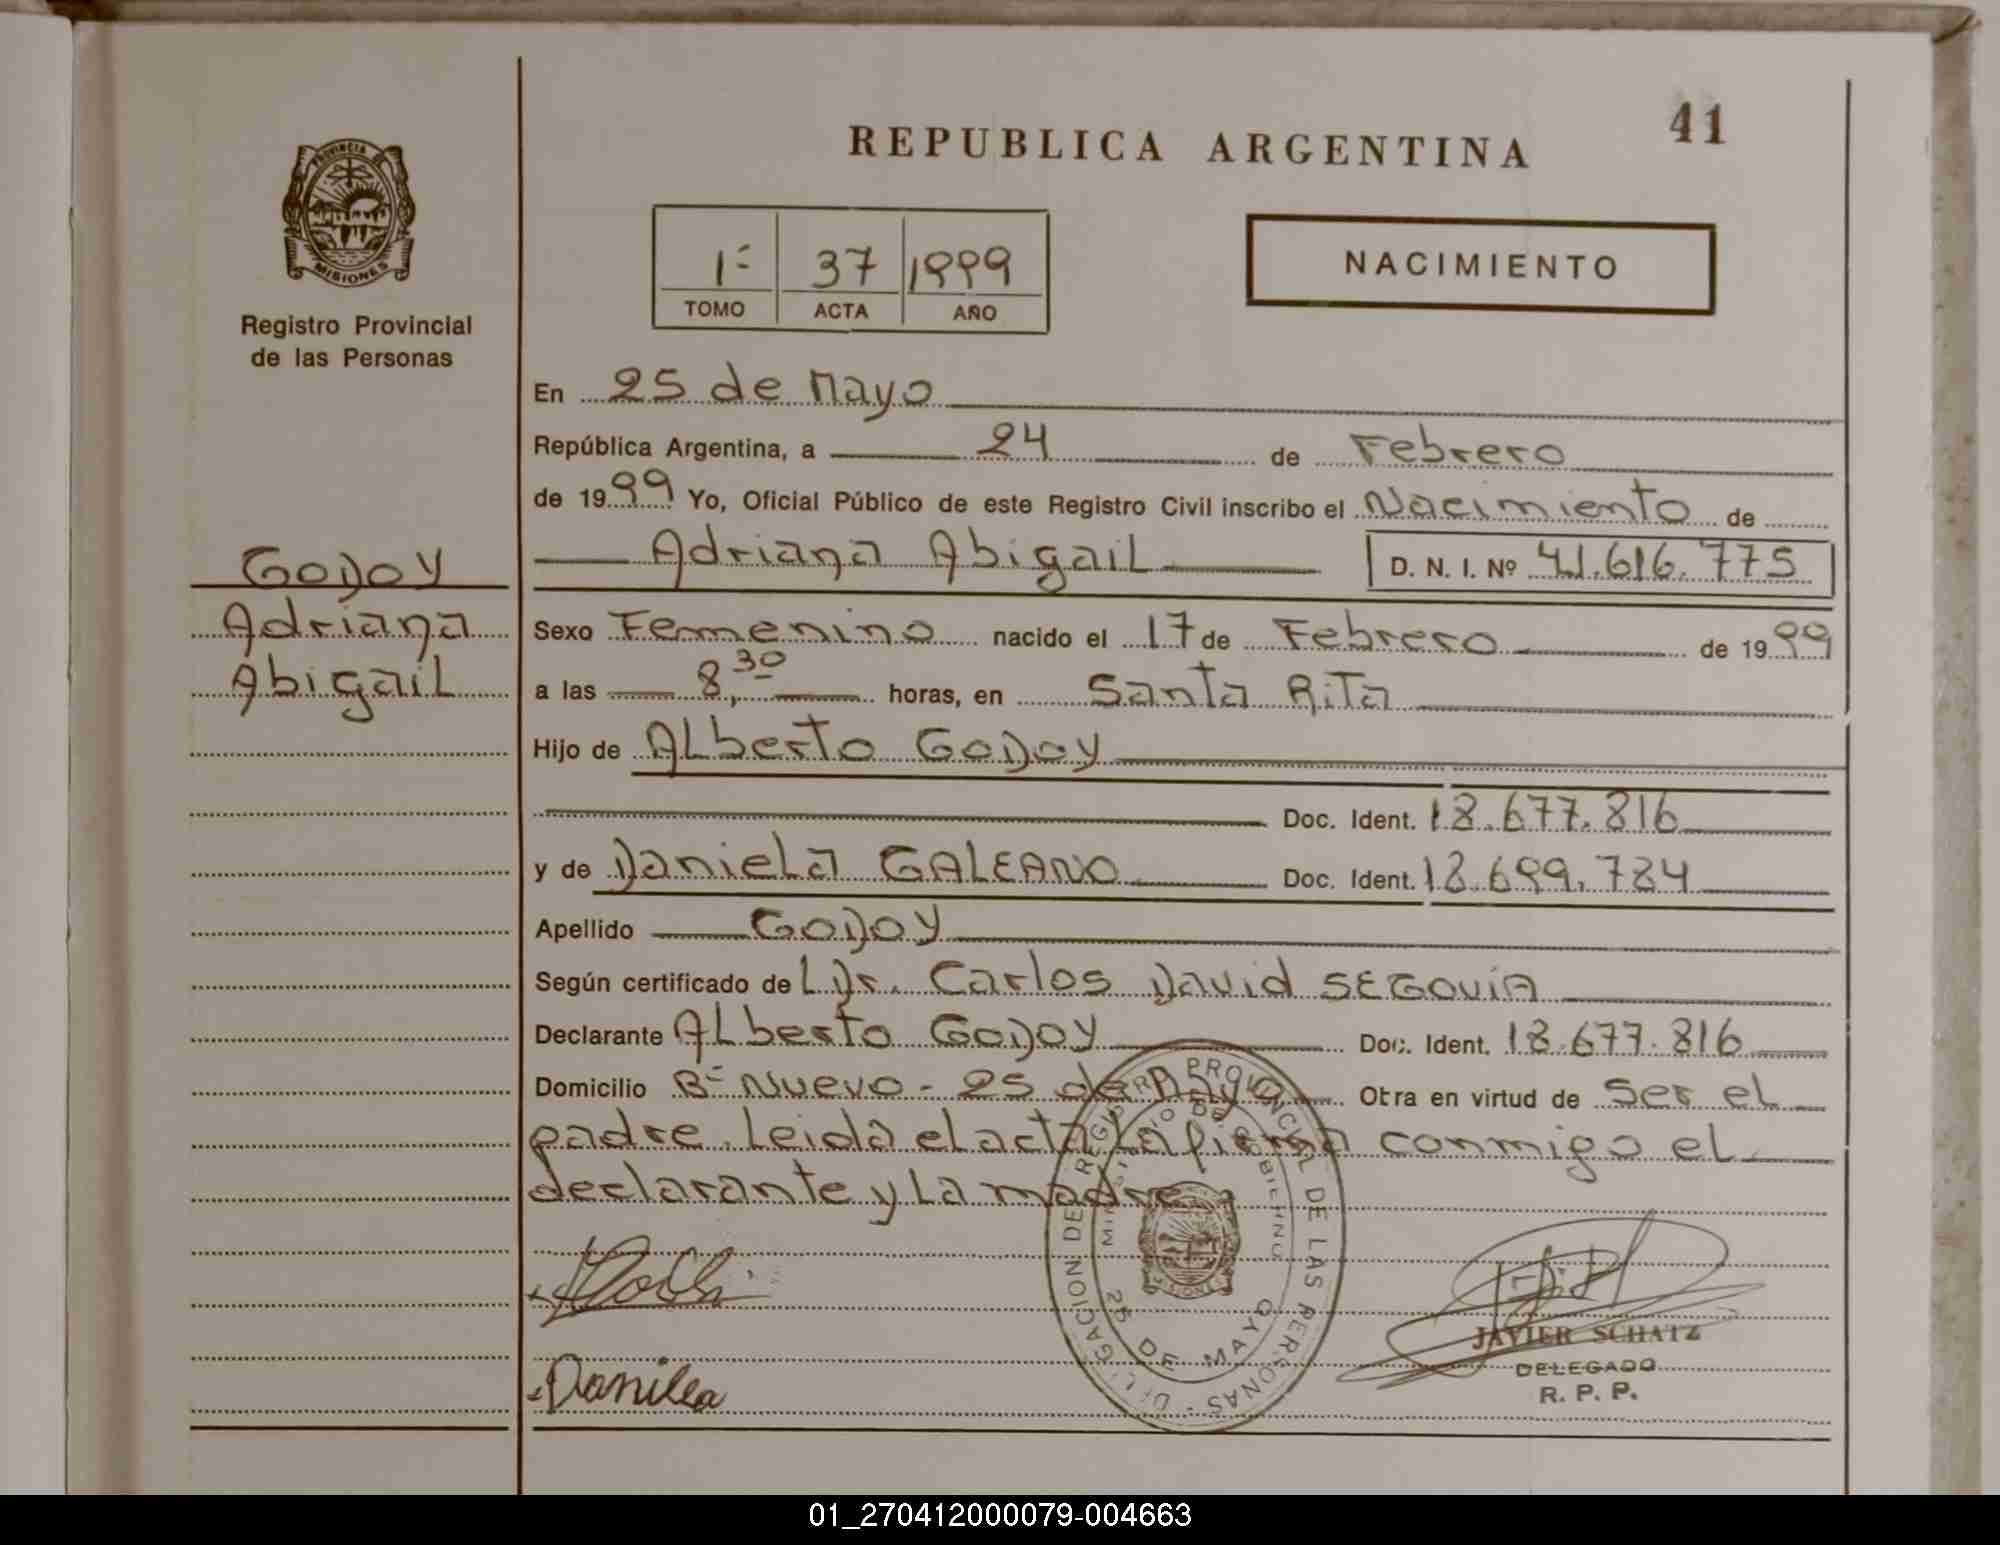 41
REPUBLICA ARGENTINA
PROVINCIA DE
MISIONES
Registro Provincial
de las Personas
1º 37 1999
TOMO ACTA AÑO
NACIMIENTO
En 25 de Mayo
República Argentina, a 24 de Febrero
de 1999 Yo, Oficial Público de este Registro Civil inscribo el Nacimiento de
Adriana Abigail D. N. I. Nº 41.616.775
GODOY
Adriana
Abigail
Sexo Femenino nacido el 17 de Febrero de 1999
a las 8,30 horas, en Santa Rita
Hijo de Alberto GODOY
Doc. Ident. 18.677.816
y de Daniela GALEANO Doc. Ident. 18.699.784
Apellido GODOY
Según certificado del Dr. Carlos David SEGOVIA
Declarante Alberto GODOY Doc. Ident. 18.677.816
Domicilio Bº Nuevo - 25 de Mayo Obra en virtud de Ser el
padre. Leida el acta la firma conmigo el
declarante y la madre
DELEGACION DE REGISTRO PROVINCIAL DE LAS PERSONAS
MINISTERIO DE GOBIERNO
25 DE MAYO
Daniela
JAVIER SCHATZ
DELEGADO
R. P. P.
01_270412000079-004663